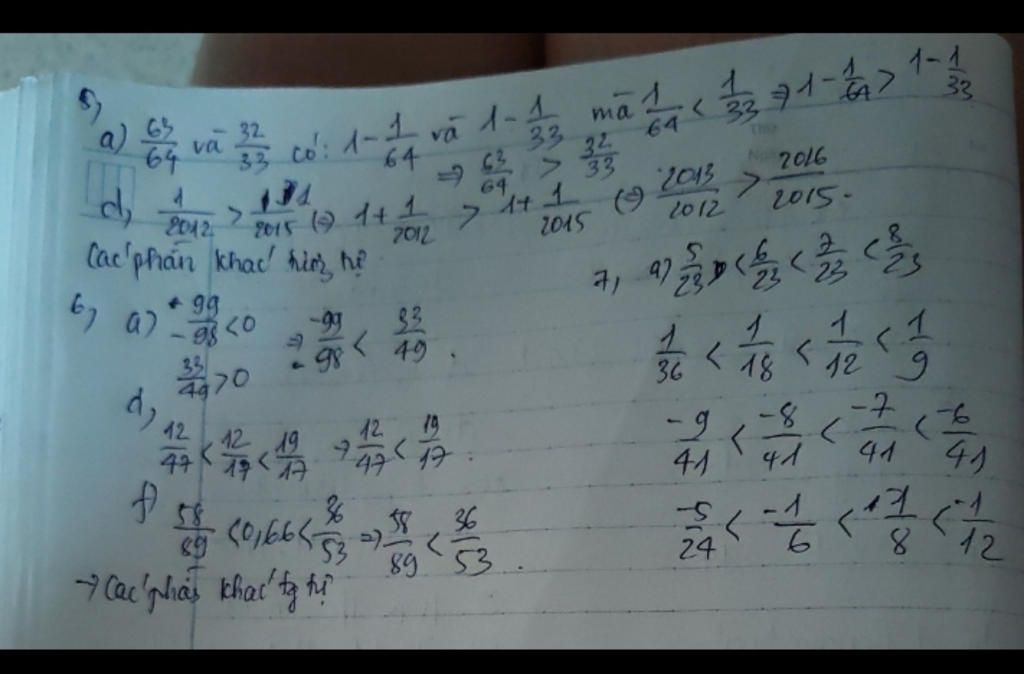 5,
a) 63/64 và 32/33 có: 1 - 1/64 và 1 - 1/33 mà 1/64 < 1/33 ⇒ 1 - 1/64 > 1 - 1/33
⇒ 63/64 > 32/33
d, 1/2012 > 1/2015 (⇒) 1 + 1/2012 > 1 + 1/2015 (⇒) 2013/2012 > 2016/2015.
Các phần khác tương tự
6, a) -99/-98 < 0 ⇒ -99/-98 < 33/49.
33/49 > 0
d, 12/47 < 12/17 < 19/17 → 12/47 < 19/17.
f) 58/89 < 0,66 < 36/53 ⇒ 58/89 < 36/53.
→ Các phần khác tg tự
7, a) 5/23 < 6/23 < 7/23 < 8/23
1/36 < 1/18 < 1/12 < 1/9
-9/41 < -8/41 < -7/41 < -6/41
-5/24 < -1/6 < -1/8 < -1/12